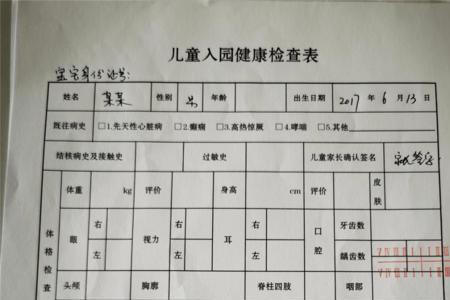 儿童入园健康检查表
宝宝身份证号:
姓名 某某 性别 男 年龄 出生日期 2017 年 6 月 13 日
既往病史 □1.先天性心脏病 □2.癫痫 □3.高热惊厥 □4.哮喘 □5.其他
结核病史及接触史 过敏史 儿童家长确认签名
体重 kg 评价 身高 cm 评价 皮肤
体格检查 眼 右 视力 右 耳 右 口腔 牙齿数
左 左 左 龋齿数
头颅 胸廓 脊柱四肢 咽部